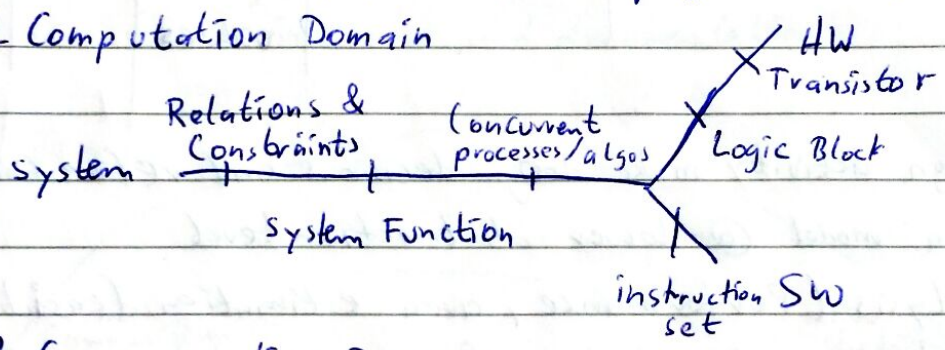 - Computation Domain
HW
Transistor
Relations &
Constraints
Concurrent
processes/algos
Logic Block
system
System Function
instruction SW
set